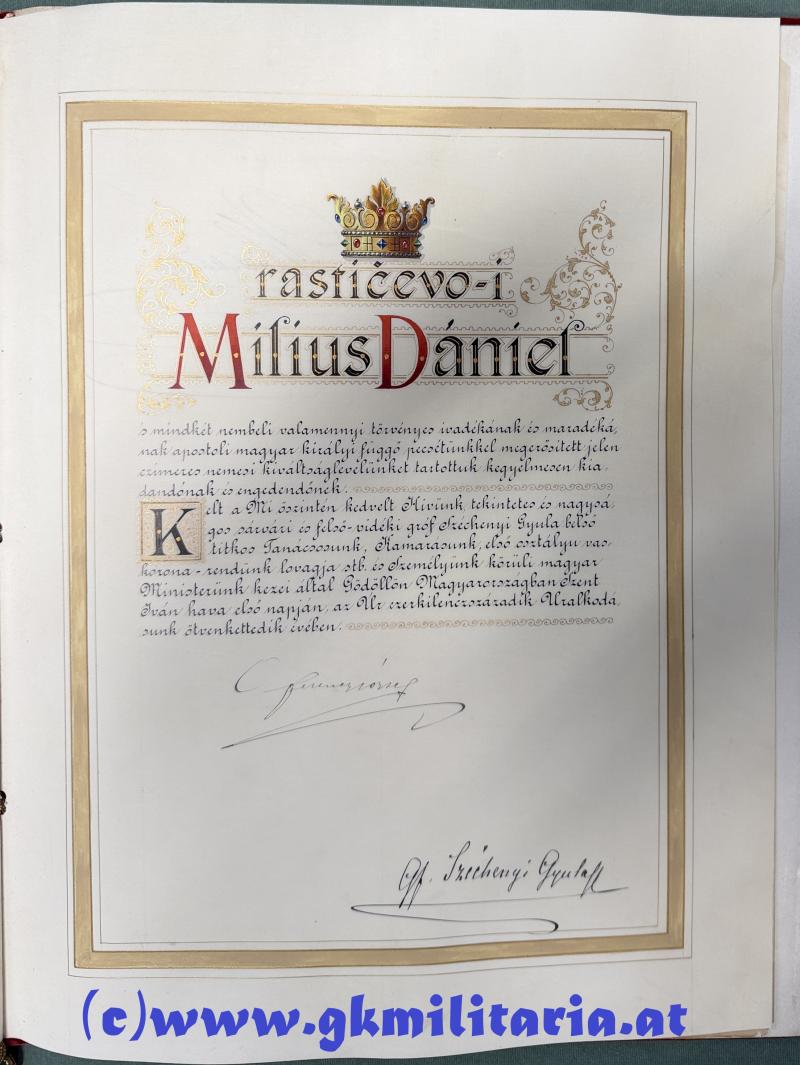 rastičevo-i
Milius Dániel
s mindkét nembeli valamennyi törvényes ivadékának és maradéká,
nak apostoli magyar királyi függő pecsétünkkel megerősített jelen
czimeres nemesi kiváltságlevelünket tartottuk kegyelmesen kia,
dandónak és engedendőnek.
Kelt a Mi őszintén kedvelt Hivünk, tekintetes és nagysá,
gos sárvári és felső-vidéki gróf Széchenyi Gyula belső
titkos Tanácsosunk, Kamarásunk, első osztályu vas,
korona-rendünk lovagja stb. és Személyünk körüli magyar
Ministerünk kezei által Gödöllőn Magyarországban Szent
Iván hava első napján, az Ur ezerkilenczszázadik Uralkodá,
sunk ötvenkettedik évében.
Ferencz József
Gf. Széchenyi Gyula
(c)www.gkmilitaria.at